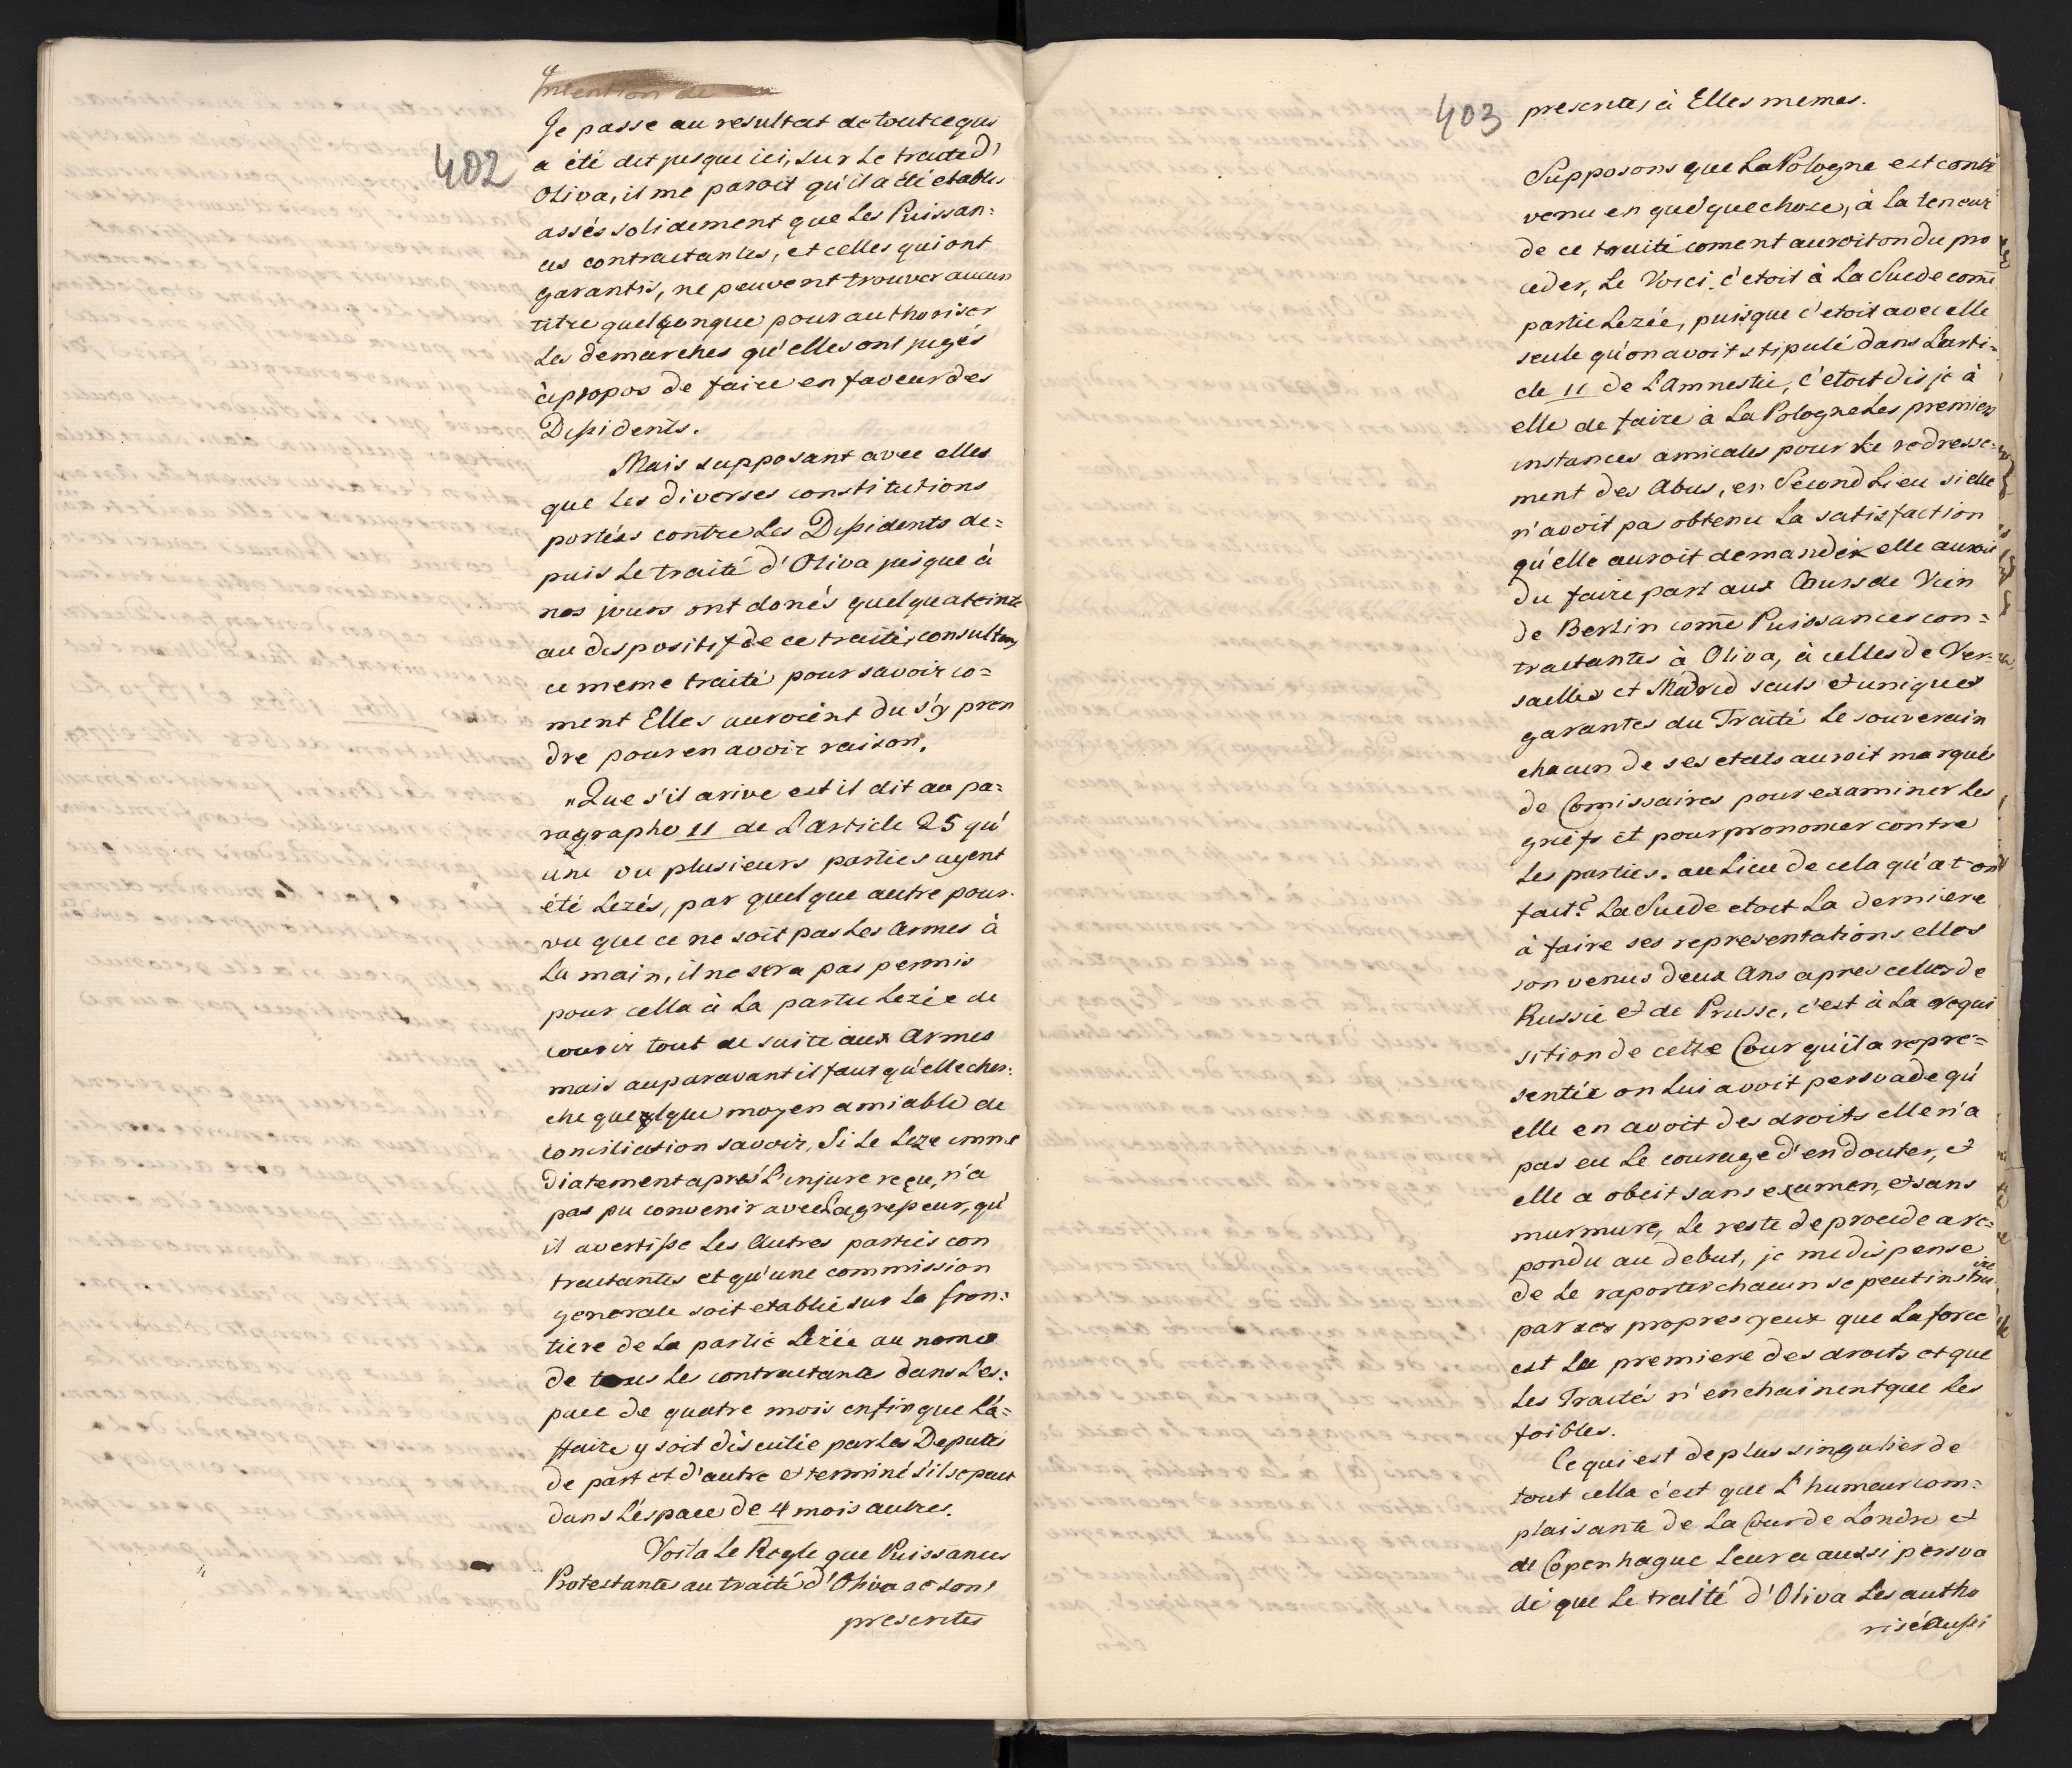 Intention de
Je passe au resultat de tout ce qui
402
a été dit jusque ici, sur Le traité d'
Oliva, il me paroit qu'il a été etablis
assés solidement que Les Puissan=
ces contractantes, et celles qui ont
garantis, ne peuvent trouver aucun
titre quelqonque pour authoriser
Les demarches qu'elles ont jugés
àpropos de faire en faveur des
Dissidents.
Mais supposant avec elles
que Les diverses constitutions
portées contre Les Dissidents de=
puis Le traité d'Oliva jusque à
nos jours ont donés quelqu'ateinte
au dispositif de ce traité, consultons
ce meme traité pour savoir co=
ment Elles auroient du s'y pren
dre pour en avoir raison.
"Que s'il arive est il dit au pa=
ragraphe 11 de L'article 25 qu'
une ou plusieurs parties ayent
été Lezés, par quelque autre pour
vu que ce ne soit pas Les Armes à
La main, il ne sera pas permis
pour cella à La partie Lezée de
courir tout de suite aux Armes
mais auparavant il faut qu'elle cher=
che quelque moyen amiable de
conciliation savoir, Si Le Leze imme
diatement aprés L'injure reçue, n'a
pas pu convenir avec L'agresseur, qu'
il avertisse Les Autres parties con
tractantes et qu'une commission
generale soit etablie sur La fron=
tiere de La partie Lezée au nome
de tous Les contractants dans L'es=
pace de quatre mois enfin que L'a=
ffaire y soit discutée par Les Deputés
de part et d'autre et terminé s'il se peut
dans L'espace de 4 mois autres.
Voila Le Regle que Puissances
Protestantes au traité d'Oliva se sont
presentes
403
presentes à Elles memes.
Supposons que La Pologne eut contre
venu en quelque chose, à La teneur
de ce traité coment auroit on du pro
ceder, Le Voici. c'etoit à La Suede come
partie Lezée, puisque c'etoit avec elle
seule qu'on avoit stipulé dans L'arti=
cle 11 de L'Amnestie, c'etoit dis je à
elle de faire à La Pologne Les premiers
instances amicales pour Le redresse=
ment des Abus, en Second Lieu si elle
n'avoit pas obtenu La satisfaction
qu'elle auroit demandée elle auroit
du faire part aux Cours de Vien
de Berlin come Puissances con=
tractantes à Oliva, à celles de Ver=
sailles et Madrid seuls et uniques
garantes du Traité Le souverain
chacun de ses etats auroit marqués
de Comissaires pour examiner Les
griefs et pour prononcer contre
Les parties. au Lieu de cela qu'a t on
fait? La Suede etoit La derniere
à faire ses representations elles
son venus deux Ans apres celles de
Russie et de Prusse, c'est à La requi
sition de cette Cour qu'il a repre=
sentée on Lui avoit persuade qu'
elle en avoit des droits elle n'a
pas eu Le courage d'en douter, et
elle a obeit sans examen, et sans
murmure, Le reste de procede a re=
pondu au debut, je me dispense
de Le raporter chacun se peut instruire
par ses propres yeux que La force
est La premiere des droits et que
Les Traités n'enchainent que Les
foibles.
Ce qui est de plus singulier de
tout cella c'est que L'humeur com=
plaisante de La Cour de Londre et
de Copenhague Leur a aussi persva
dé que Le traité d'Oliva Les autho
risé aussi